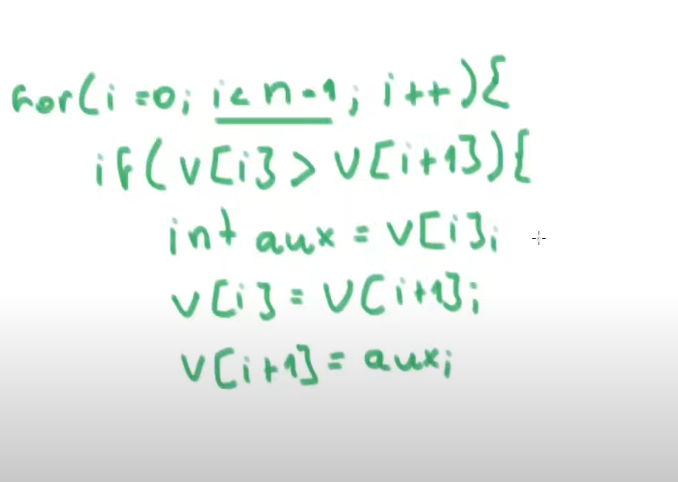 for(i=0; i<n-1; i++){
if(v[i]>v[i+1]){
int aux = v[i];
v[i] = v[i+1];
v[i+1] = aux;